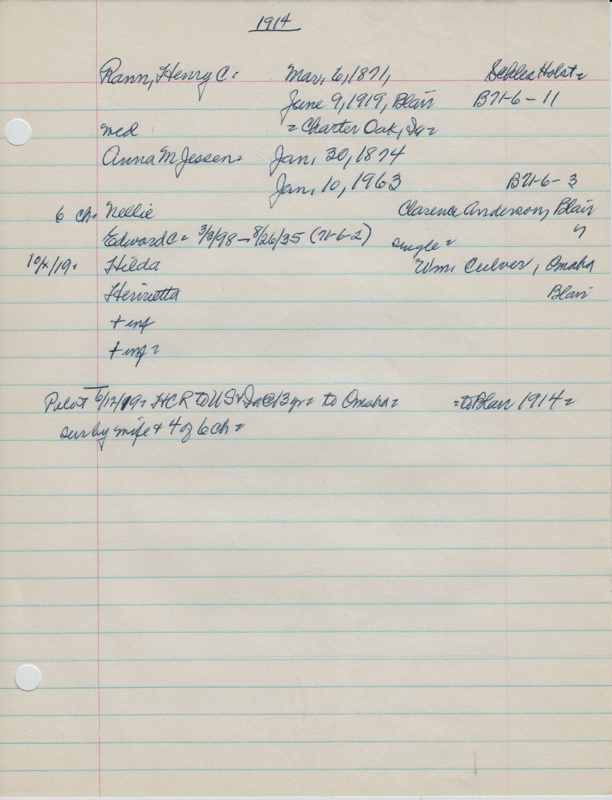 1914
Rann, Henry C = Mar, 6, 1871, Schles Holst =
June 9, 1919, Blair B71-6-11
med = Charter Oak, Ia =
Anna M Jessen = Jan, 30, 1874
Jan, 10, 1963 B71-6-3
6 ch = Nellie Clarence Anderson, Blair
Edward C = 3/3/98 - 8/26/35 (71-6-2) single = "
10/x/19 = Hilda Wm. Culver, Omaha
Henrietta Blair
+ inf
+ inf =
Pilot 6/12/19 = HCR to US & Ia @ 13 yr = to Omaha = = to Blair 1914 =
sur by wife & 4 of 6 ch =